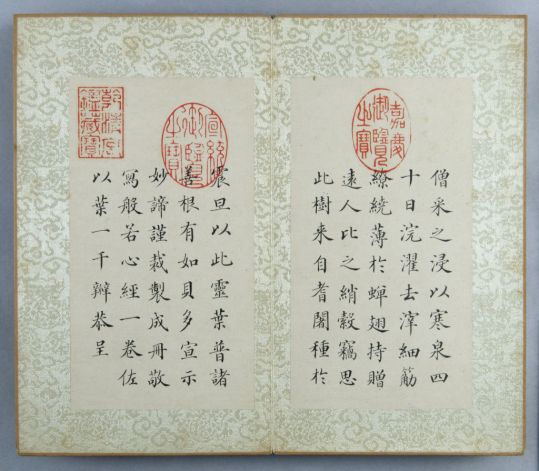 嘉慶御覽之寶
僧采之浸以寒泉四
十日浣濯去滓細筋
繚繞薄於蟬翅持贈
遠人比之綃縠竊思
此樹来自耆闍種於
宣統御覽之寶
震旦以此靈葉普諸
善根有如貝多宣示
妙諦謹裁製成冊敬
寫般若心經一卷佐
以葉一千瓣恭呈
乾清宮鑑藏寶